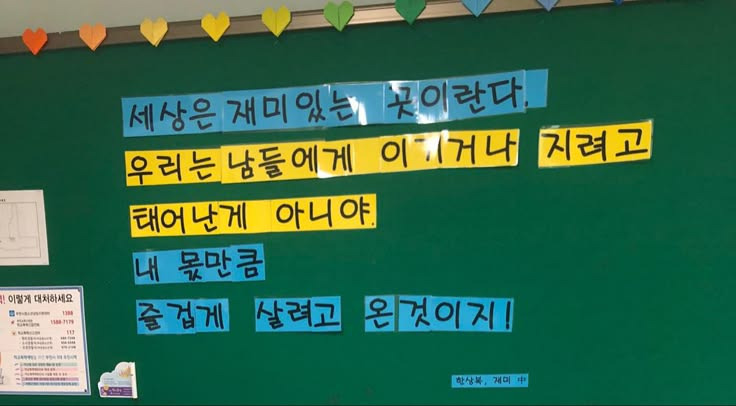 세상은 재미있는 곳이란다.
우리는 남들에게 이기거나 지려고
태어난게 아니야.
내 몫만큼
즐겁게 살려고 온것이지!
한상복, 재미 中
이렇게 대처하세요
1388
1588-7179
117